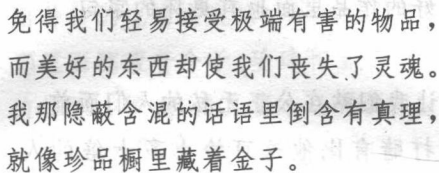 免得我们轻易接受极端有害的物品，
而美好的东西却使我们丧失了灵魂。
我那隐蔽含混的话语里倒含有真理，
就像珍品橱里藏着金子。